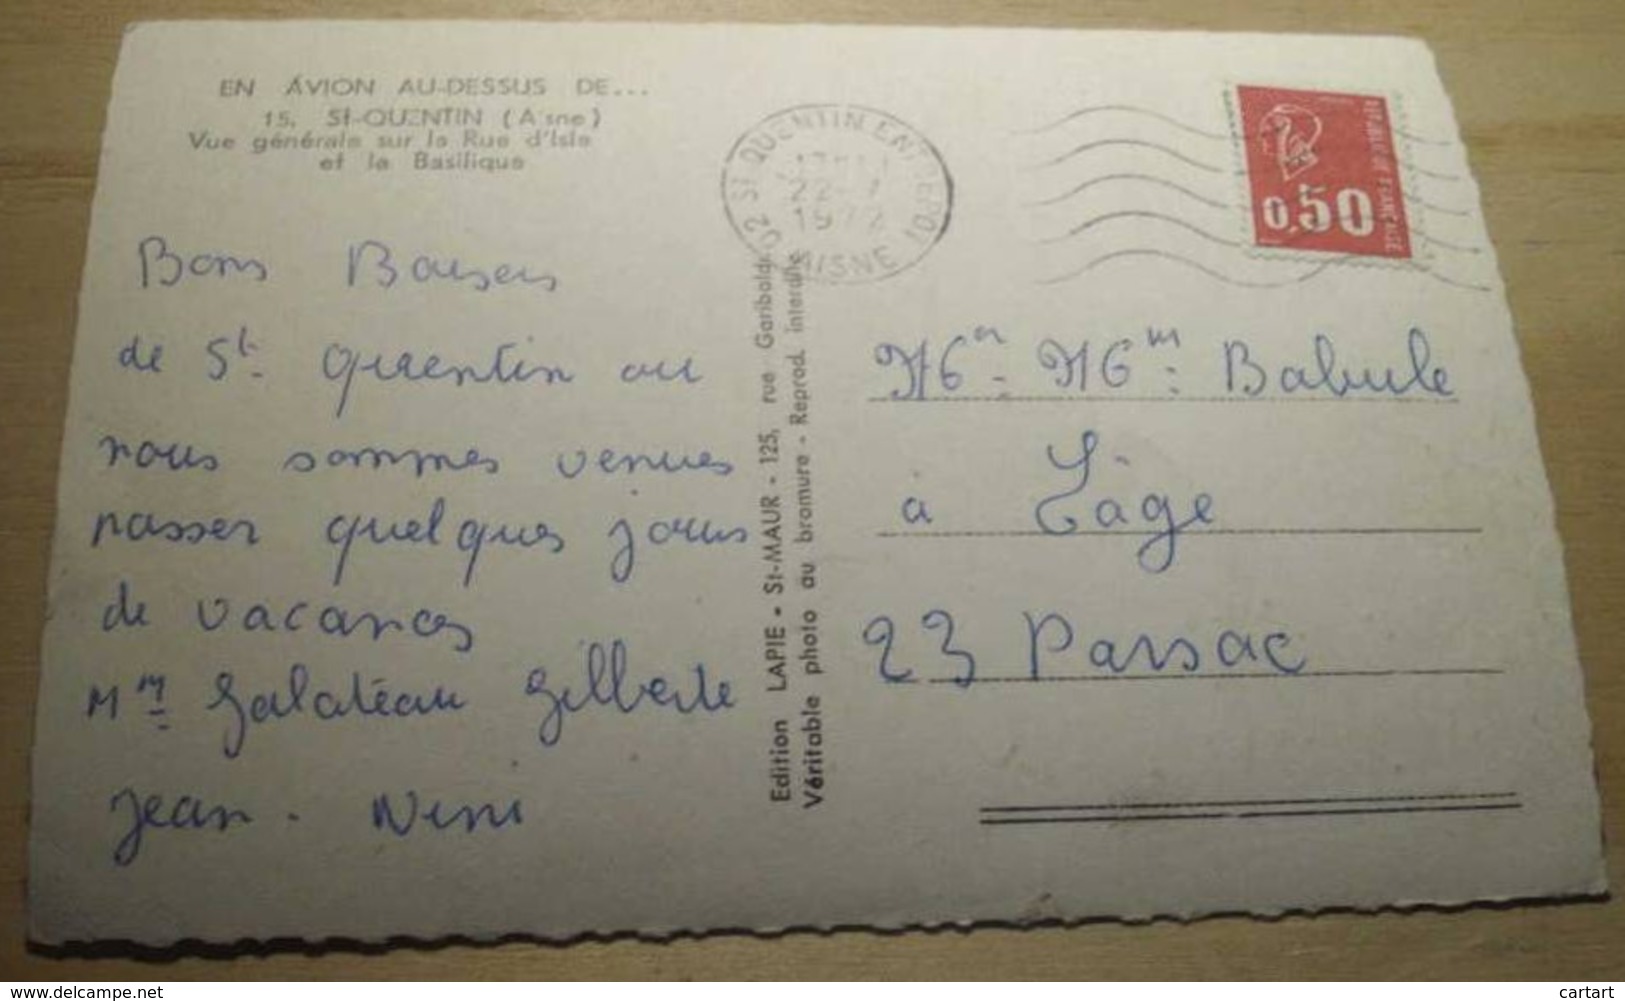 EN AVION AU-DESSUS DE...
15. St-QUENTIN (Aisne)
Vue générale sur la Rue d'Isle
et la Basilique
Bons Baisers
de St quentin ou
nous sommes venues
passer quelques jours
de vacances
Mme Galatéau Gilberte
Jean. Nini
Edition LAPIE - St-MAUR - 125, rue Garibaldi
Véritable photo au bromure - Reprod. interdite
02 St QUENTIN ENTREPOT
22-7
1972
AISNE
REPUBLIQUE FRANÇAISE
0,50
Babule
à Lage
23 Parsac
www.delcampe.net
cartart